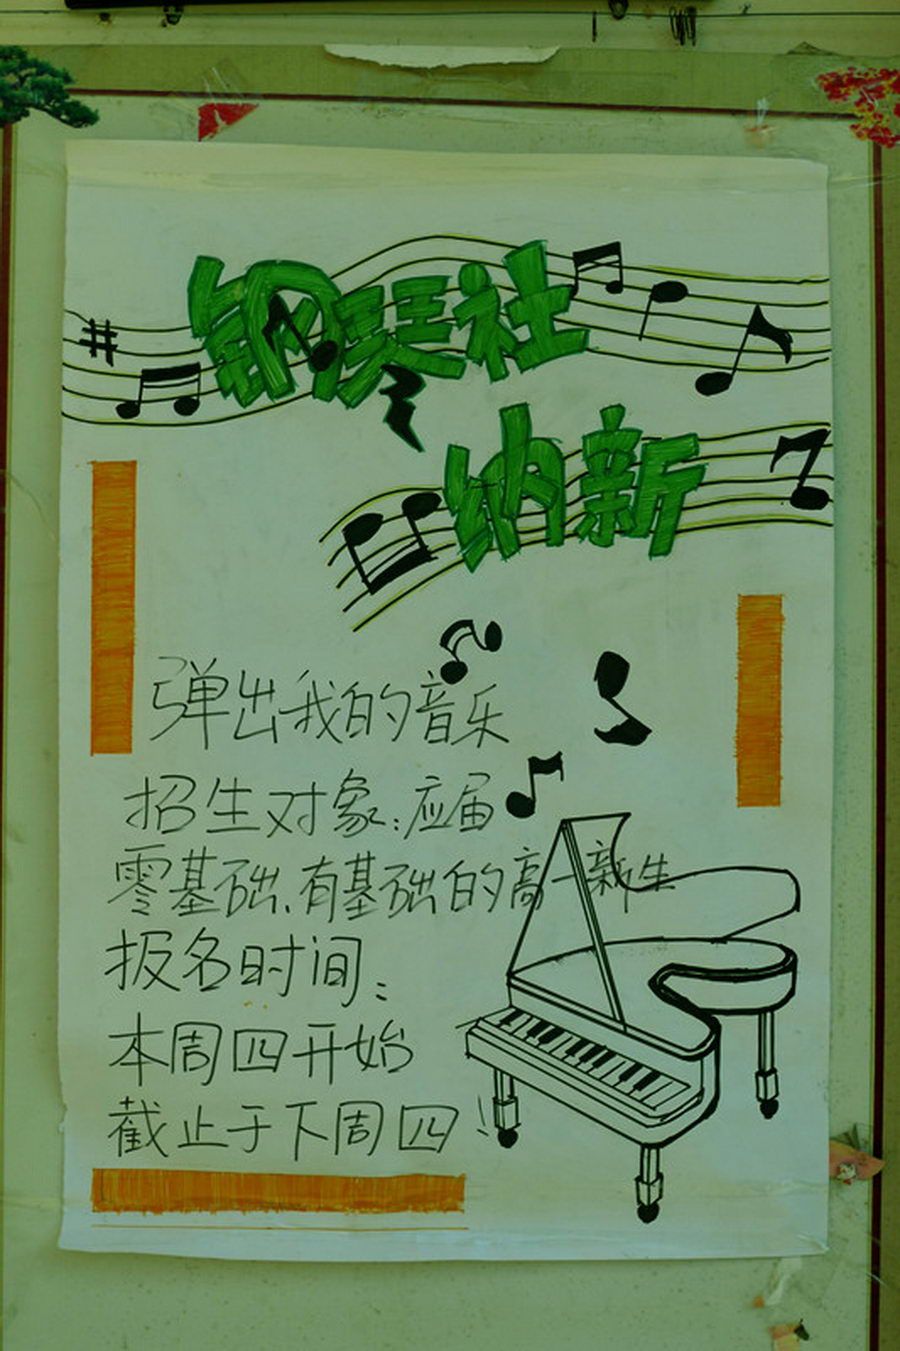 钢琴社
纳新
弹出我的音乐
招生对象:应届
零基础、有基础的高一新生
报名时间:
本周四开始
截止于下周四